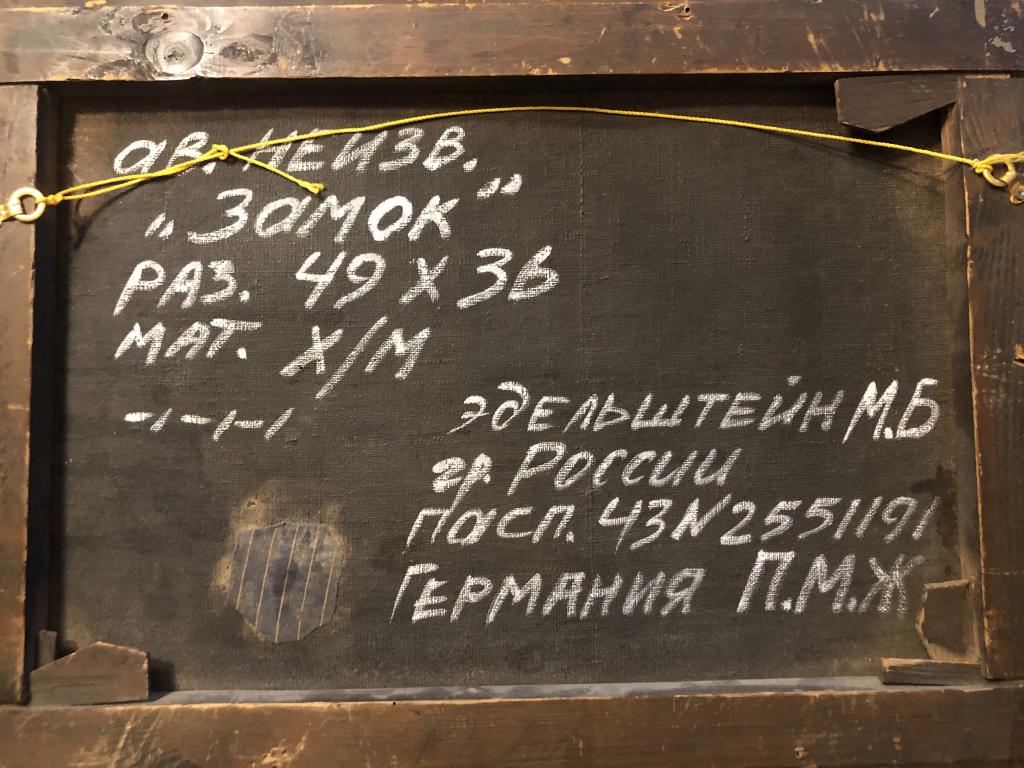 ав. НЕИЗВ.
„Замок"
РАЗ. 49 X 36
МАТ. Х/М
ЭДЕЛЬШТЕЙН М.Б
гр. России
Пасп. 43N2551191
ГЕРМАНИЯ П.М.Ж